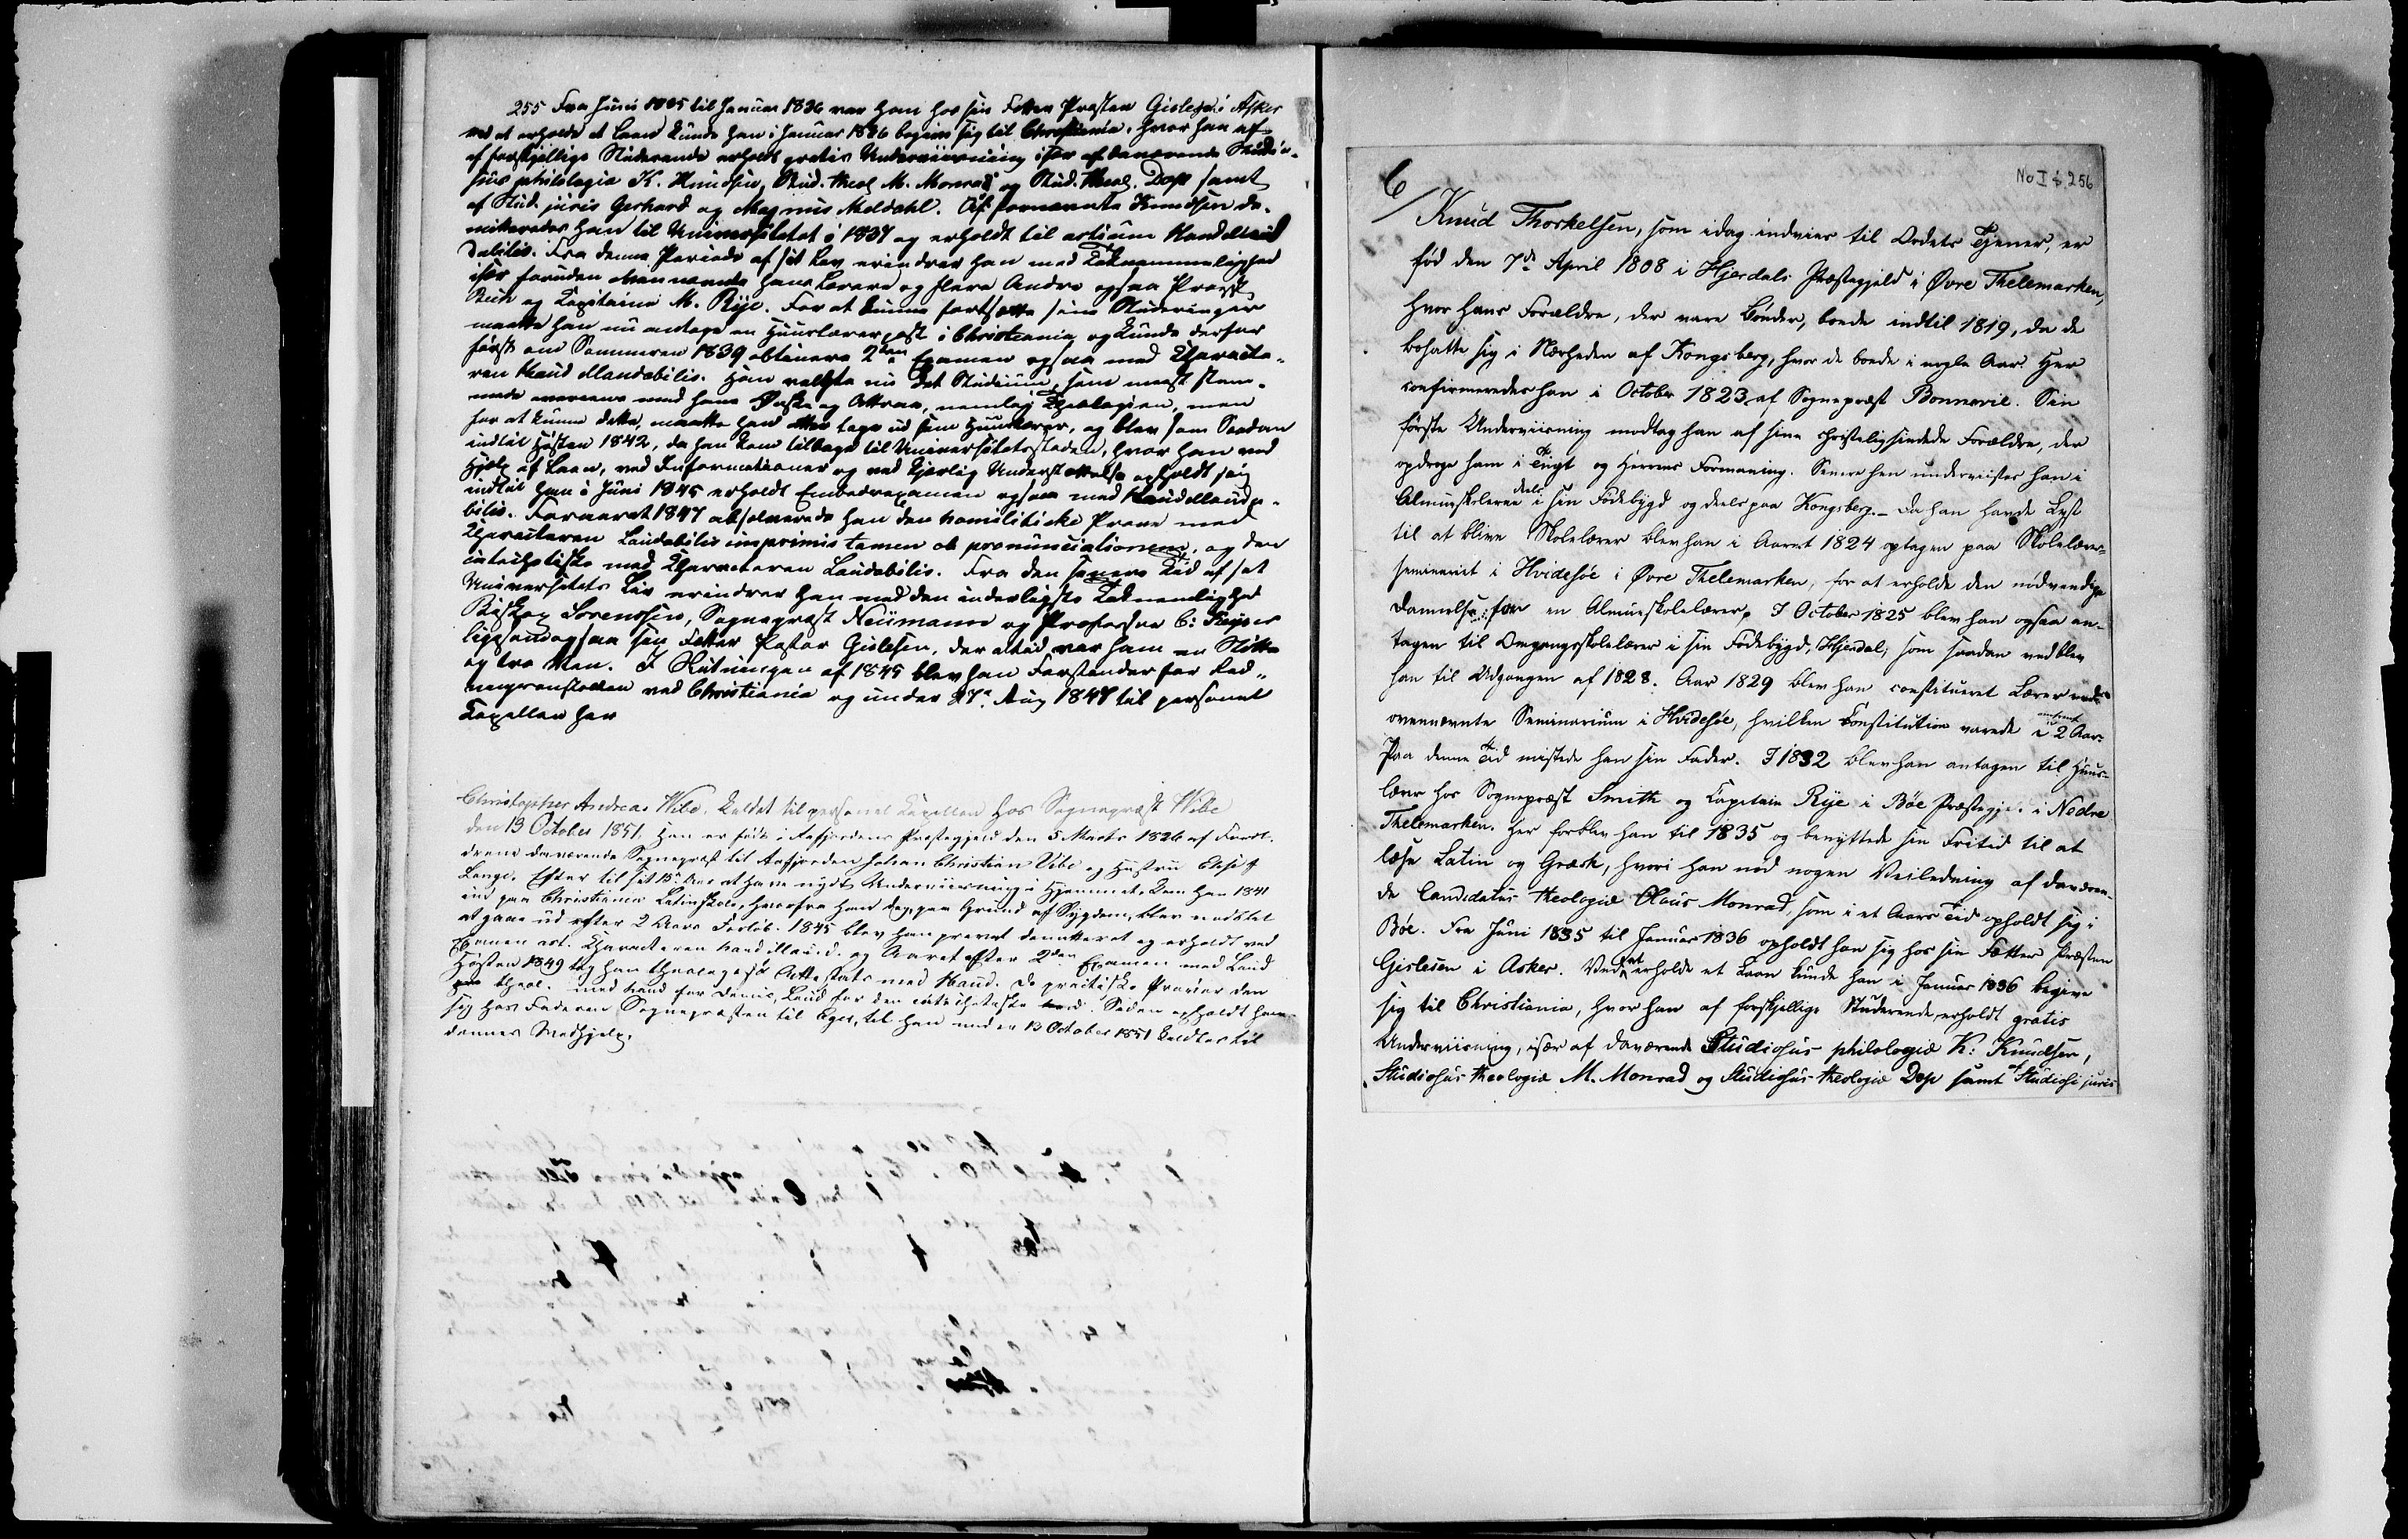 255 Fra Juni 1835 til Januar 1836 var han hos sin Fetter Præsten Gislesen i Asker
ved at erholde et Laan kunde han i Januar 1836 begive sig til Christiania, hvor han af
af forskjellige Studerende erholdt gratis Underviisning især af daværende Studio-
sus philologiæ K. Knudsen, Stud. theol M. Monrad og Stud. theol. Dop samt
af Stud. juris Gerhard og Magnus Meldahl. Af fornævnte Knudsen de-
mitteredes han til Universitetet i 1837 og erholdt til artium Haudillaud
dabilis. Fra denne Periode af sit Lev erindrer han med Taknemmelighed
især foruden ovennævnte hans Lærere og flere Andre ogsaa Provst
og Capitaine M. Rye. For at kunne fortsætte sine Studeringer
maatte han nu antage en Huuslærerpost i Christiania og kunde derfor
først om Sommeren 1839 absolvere 2den Examen ogsaa med Characte-
ren Haud illaudabilis. Han valgte nu det Studium, som meest stem-
mede overeens med hans Ønske og Attraa, nemlig Theologien, men
for at kunne dette, maatte han atter tage ud som Huuslærer, og blev som Saadan
indtil Høsten 1842, da han kom tilbage til Universitetsstaden, hvor han ved
Hjelp af Laan, ved Informationer og ved kjærlig Understøttelse opholdt sig
indtil han i Juni 1845 erholdt Embedsexamen ogsaa med Haud illauda-
bilis. Foraaret 1847 absolverede han den homiletiske Prøve med
Characteren Laudabilis imprimis tamen ob pronunciationem, og den
catechetiske med Characteren Laudabilis. Fra den senere Tid af sit
Universitets Liv erindrer han med den inderligste Taknemlighed
Biskop Sørenssen, Sognepræst Neumann og Professor C: Keyser
ligesom ogsaa sin Fetter Pastor Gislesen, der altid var ham en Støtte
og tro Ven. I Slutningen af 1845 blev han Forstander for Red-
ningsanstalten ved Christiania og under 27de Aug 1847 til personel
Capellan her
Christopher Andreas Wibe. kaldet til personel Capellan hos Sognepræst Wibe
den 13 October 1851. Han er født i Aafjordens Præstegjeld den 5 Marts 1826 af Foræl-
drene daværende Sognepræst til Aafjorden Johan Christian Vibe og Hustru
Lange. Efter til sit 15de Aar at have nydt Underviisning i Hjemmet, kom han 1841
ind paa Christiania Latinskole, hvorfra han dog, paa Grund af Sygdom, blev nødt til
at gaae ud efter 2 Aars Forløb. 1845 blev han privat demitteret og erholdt ved
Examen art. Characteren haud illaud. og Aaret efter 2den Examen med Laud
Høsten 1849 tog han theologisk Attestats med Haud. De practiske Prøver den
theol. med haud for Dimis, Laud for den catechetiske. Siden opholdt han
sig hos Faderen Sognepræsten til Eger, til han under 13 October 1851 kaldtes til
dennes Medhjelp.
No I § 256
6/
Knud Thorkelsen, som idag indvies til Ordets Tjener, er
fød den 7de April 1808 i Hjerdals Præstegjeld i Øvre Thelemarken,
hvor hans Forældre, der vare Bønder, boede indtil 1819, da de
bosatte sig i Nærheden af Kongsberg, hvor de boede i nogle Aar. Her
confirmeredes han i October 1823, af Sognepræst Bonnevie. Sin
første Underviisning modtog han af sine christeligsindede Forældre, der
opdroge ham i Tugt og Herrens Formaning. Senere hen underviistes han i
Almueskolerne deels i sin Fødebygd og deels paa Kongsberg. – Da han havde Lyst
til at blive Skolelærer blev han i Aaret 1824 optagen paa Skolelærer-
seminariet i Hvidesøe i Øvre Thelemarken, for at erholde den nødvendige
Dannelse for en Almueskolelærer. I October 1825 blev han ogsaa an-
tagen til Omgangsskolelærer i sin Fødebygd, Hjerdal, som saadan vedblev
han til Udgangen af 1828. Aar 1829 blev han constitueret Lærer ved
ovennævnte Seminarium i Hvidesøe, hvilken Constitution varede omtrent i 2 Aar.
Paa denne Tid mistede han sin Fader. I 1832 blev han antagen til Huus-
lærer hos Sognepræst Smith og Capitain Rye i Bøe Præstegje. i Nedre
Thelemarken. Her forblev han til 1835 og benyttede sin Fritid til at
læse Latin og Græsk, hvori han nød nogen Veiledning af daværen-
de Candidatus theologiæ Claus Monrad, som i et Aars Tid opholdt sig i
Bøe. Fra Juni 1835 til Januar 1836 opholdt han sig hos sin Fætter Præsten
Gislesen i Asker. Ved at erholde et Laan kunde han i Januar 1836 begive
sig til Christiania, hvor han af forskjellige Studerende, erholdt gratis
Underviisning, især af daværende Studiosus philologiæ K: Knudsen,
Studiosus theologiæ M. Monrad og Studiosus theologiæ Dop samt af Studiosi juris